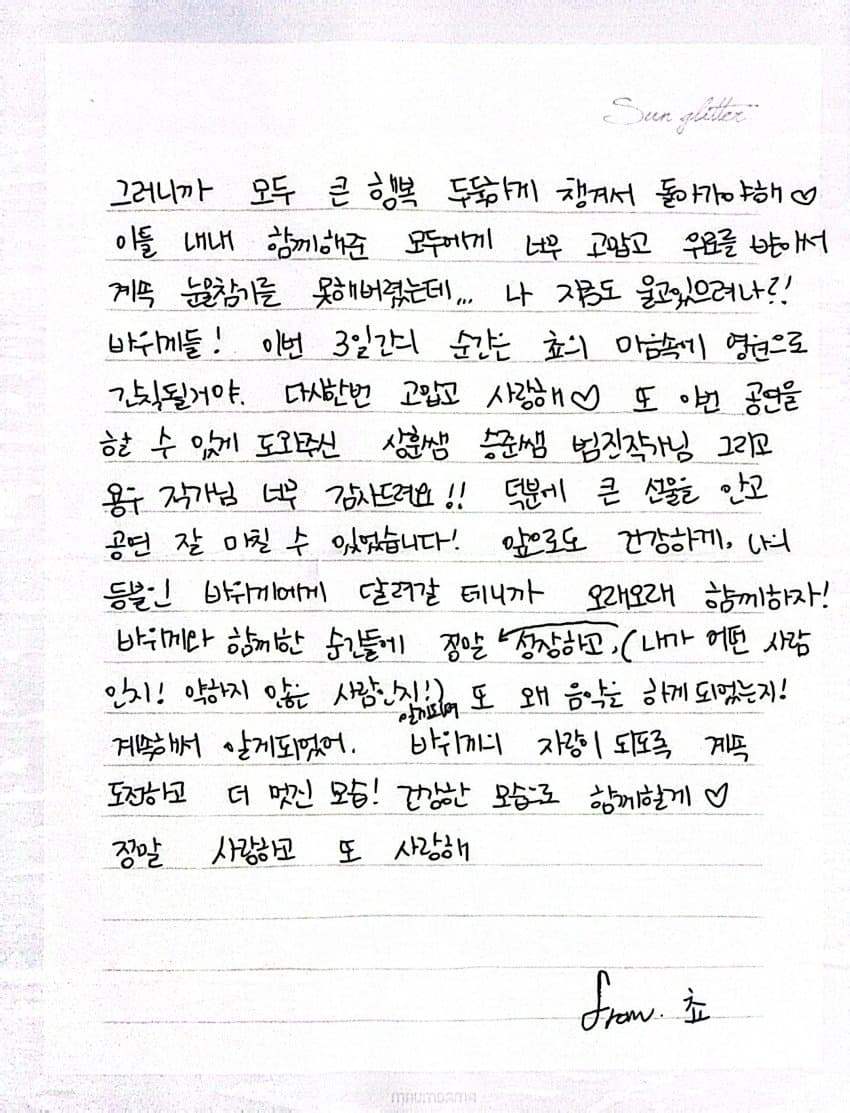 Sun glitter
그러니까 모두 큰 행복 두둑하게 챙겨서 돌아가야해♡
이틀 내내 함께해준 모두에게 너무 고맙고 위로를 받아서
계속 눈물참기를 못해버렸는데... 나 지금도 울고있으려나?!
바위게들! 이번 3일간의 순간은 쵸의 마음속에 영원으로
간직될거야. 다시한번 고맙고 사랑해♡ 또 이번 공연을
할 수 있게 도와주신 상훈쌤 승준쌤 범진작가님 그리고
용우 작가님 너무 감사드려요!! 덕분에 큰 선물을 안고
공연 잘 마칠 수 있었습니다! 앞으로도 건강하게, 나의
등불인 바위게에게 달려갈 테니까 오래오래 함께하자!
바위게와 함께한 순간들에 정말 성장하고, (내가 어떤 사람
인지! 약하지 않은 사람인지!) 알게되며 또 왜 음악을 하게 되었는지!
계속해서 알게되었어. 바위게의 자랑이 되도록 계속
도전하고 더 멋진 모습! 건강한 모습으로 함께할게♡
정말 사랑하고 또 사랑해
from. 쵸